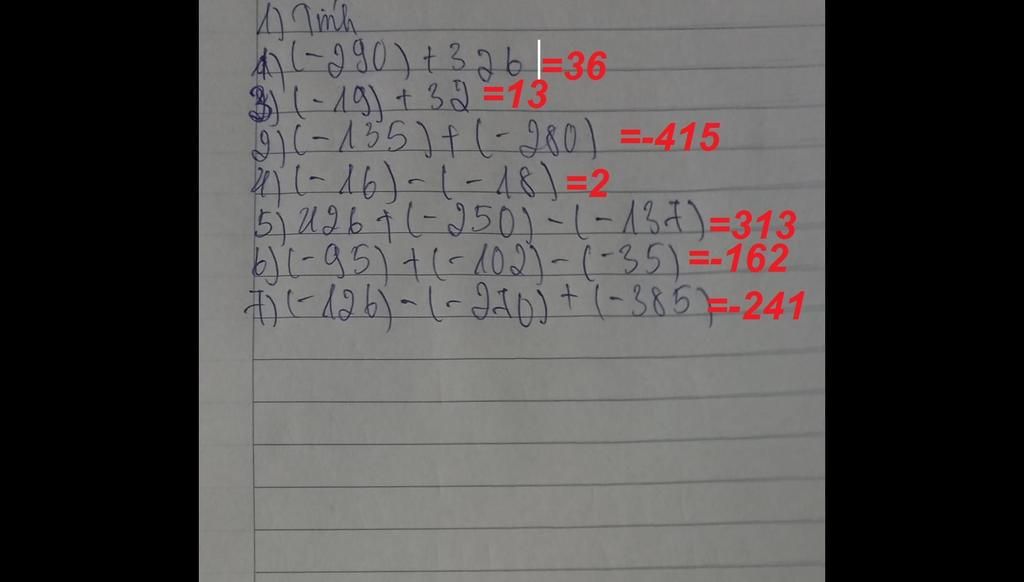 1) Tính
1) (-290) + 326 =36
3) (-19) + 32 =13
2) (-135) + (-280) =-415
4) (-16) - (-18) =2
5) 426 + (-250) - (-137) =313
6) (-95) + (-102) - (-35) =-162
7) (-126) - (-270) + (-385) =-241